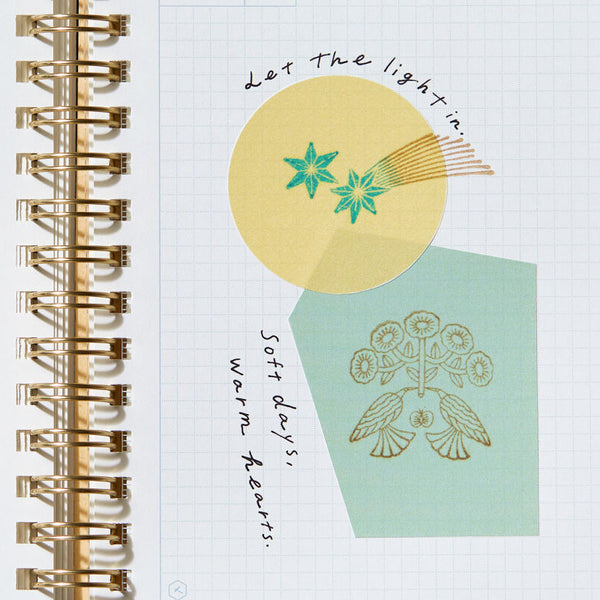 Let the light in.
Soft days,
warm hearts.